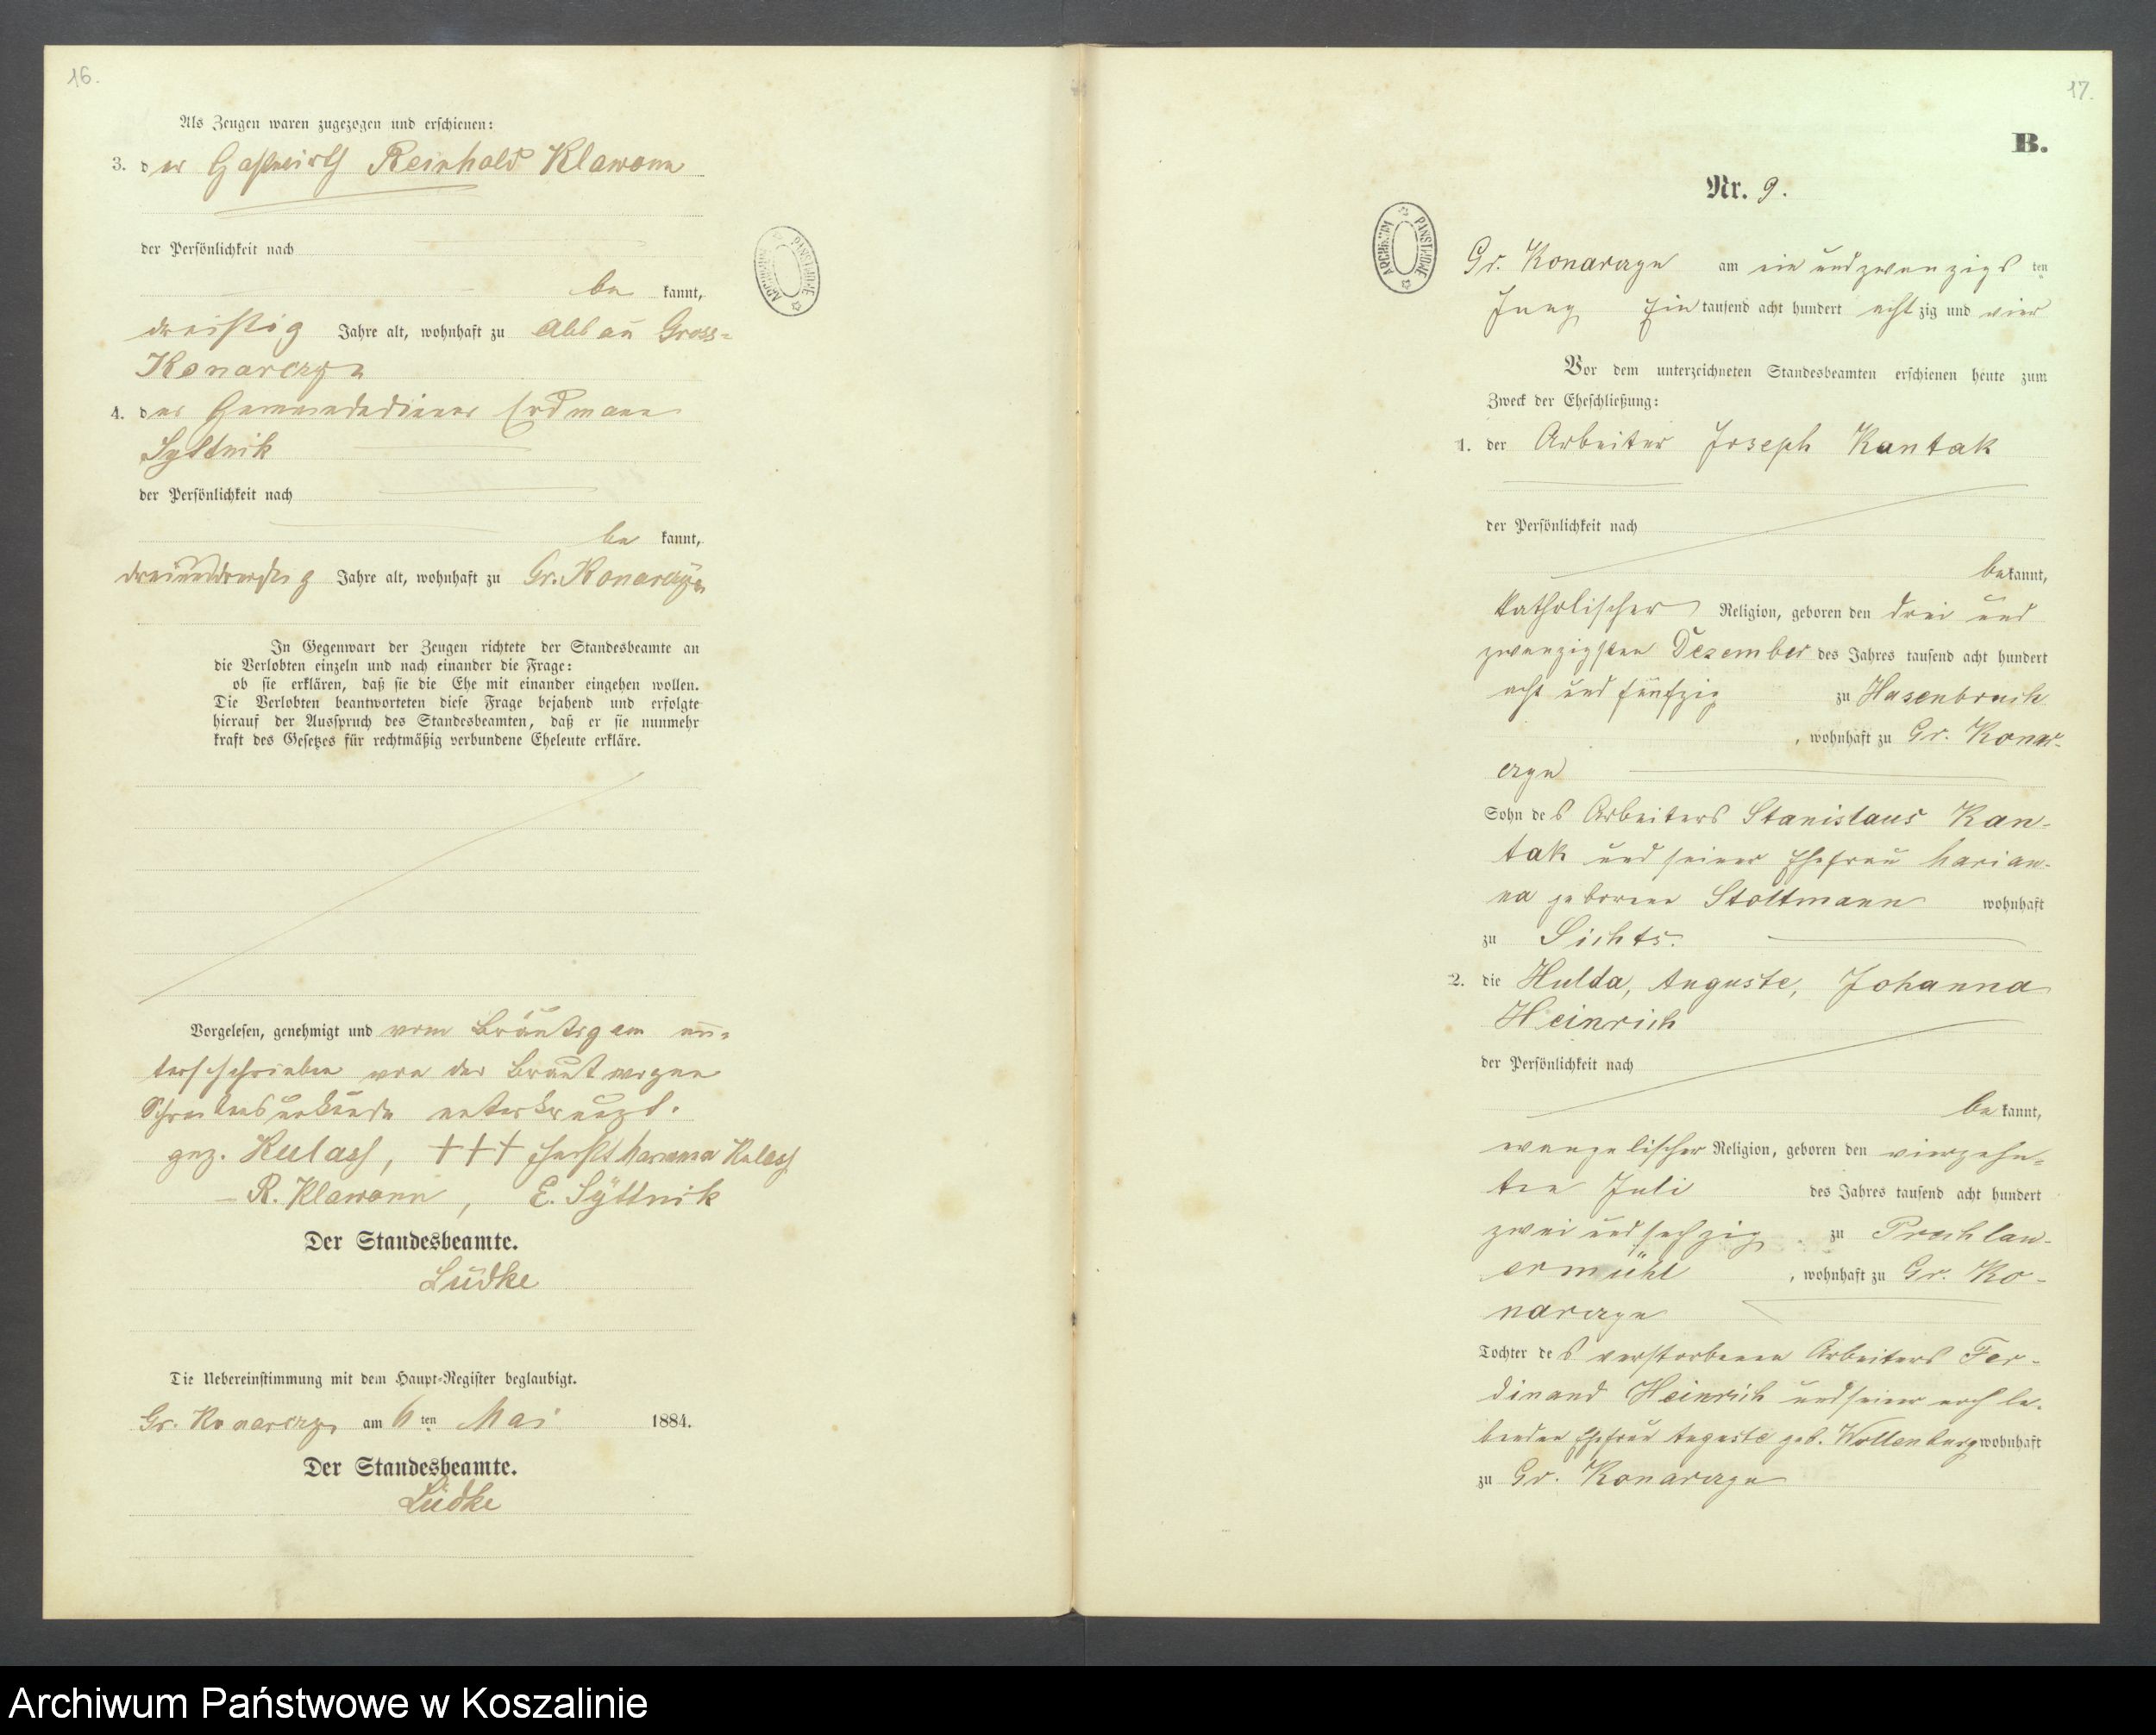 16.
Als Zeugen waren zugezogen und erschienen:
3. der Gastwirth Reinhold Klawonn
der Persönlichkeit nach
be kannt,
dreißig Jahre alt, wohnhaft zu Abbau Gross-
Konarczyn
4. der Gemeindediener Erdmann
Syttnik
der Persönlichkeit nach
be kannt,
dreiunddreißig Jahre alt, wohnhaft zu Gr. Konarczyn
In Gegenwart der Zeugen richtete der Standesbeamte an
die Verlobten einzeln und nach einander die Frage:
ob sie erklären, daß sie die Ehe mit einander eingehen wollen.
Die Verlobten beantworteten diese Frage bejahend und erfolgte
hierauf der Ausspruch des Standesbeamten, daß er sie nunmehr
kraft des Gesetzes für rechtmäßig verbundene Eheleute erkläre.
Vorgelesen, genehmigt und vom Bräutigam un-
terschrieben von der Braut wegen
Schreibensunkunde unterkreuzt.
gez. Kulass, +++ Marianna Kulass
R. Klawonn, E. Syttnik
Der Standesbeamte.
Lüdke
Die Uebereinstimmung mit dem Haupt-Register beglaubigt.
Gr. Konarczyn am 6 ten Mai 1884.
Der Standesbeamte.
Lüdke
ARCHIWUM PAŃSTWOWE
17.
B.
Nr. 9.
ARCHIWUM PAŃSTWOWE
Gr. Konarczyn am ein und zwanzigs ten
Juny Ein tausend acht hundert acht zig und vier
Vor dem unterzeichneten Standesbeamten erschienen heute zum
Zweck der Eheschließung:
1. der Arbeiter Joseph Kantak
der Persönlichkeit nach
be kannt,
katholischer Religion, geboren den drei und
zwanzigsten Dezember des Jahres tausend acht hundert
acht und fünfzig zu Hasenbruch
, wohnhaft zu Gr. Konar-
czyn
Sohn des Arbeiters Stanislaus Kan-
tak und seiner Ehefrau Marian-
na geborene Stoltmann wohnhaft
zu Sichts.
2. die Hulda, Auguste, Johanna
Heinrich
der Persönlichkeit nach
be kannt,
evangelischer Religion, geboren den vierzehn-
ten Juli des Jahres tausend acht hundert
zwei und sechzig zu Prechlau-
ermühl , wohnhaft zu Gr. Ko-
narczyn
Tochter des verstorbenen Arbeiters Fer-
dinand Heinrich und seiner noch le-
benden Ehefrau Auguste geb. Wollenburg wohnhaft
zu Gr. Konarczyn
Archiwum Państwowe w Koszalinie